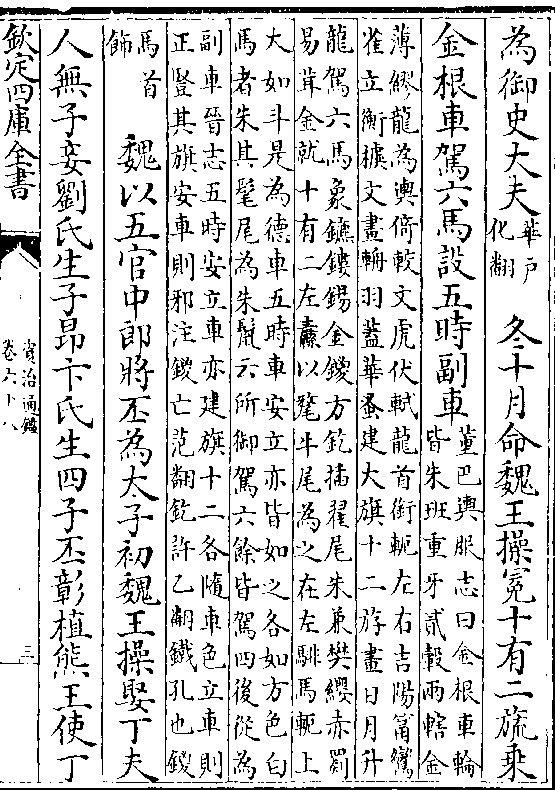 為御史大夫華戶化翻冬十月命魏王操冕十有二旒乗
金根車駕六馬設五時副車董巴輿服志曰金根車輪皆朱班重牙貳轂兩轄金
薄繆龍為輿倚較文虎伏軾龍首銜軛左右吉陽筩鸞
雀立衡㯫文畫輈羽蓋華蚤建大旗十二斿畫日月升
龍駕六馬象鑣鏤錫金鍐方釳插翟尾朱兼樊纓赤罽
易茸金就十有二左纛以氂牛尾為之在左騑馬軛上
大如斗是為德車五時車安立亦皆如之各如方色白
馬者朱其髦尾為朱鬛云所御駕六餘皆駕四後從為
副車晉志五時安立車亦建旗十二各隨車色立車則
正豎其旗安車則邪注鍐亡范翻釳許乙翻鐵孔也鍐
馬首飾魏以五官中郎將丕為太子初魏王操娶丁夫
人無子妾劉氏生子昂卞氏生四子丕彰植熊王使丁
欽定四庫全書
資治通鑑
卷六十八
三